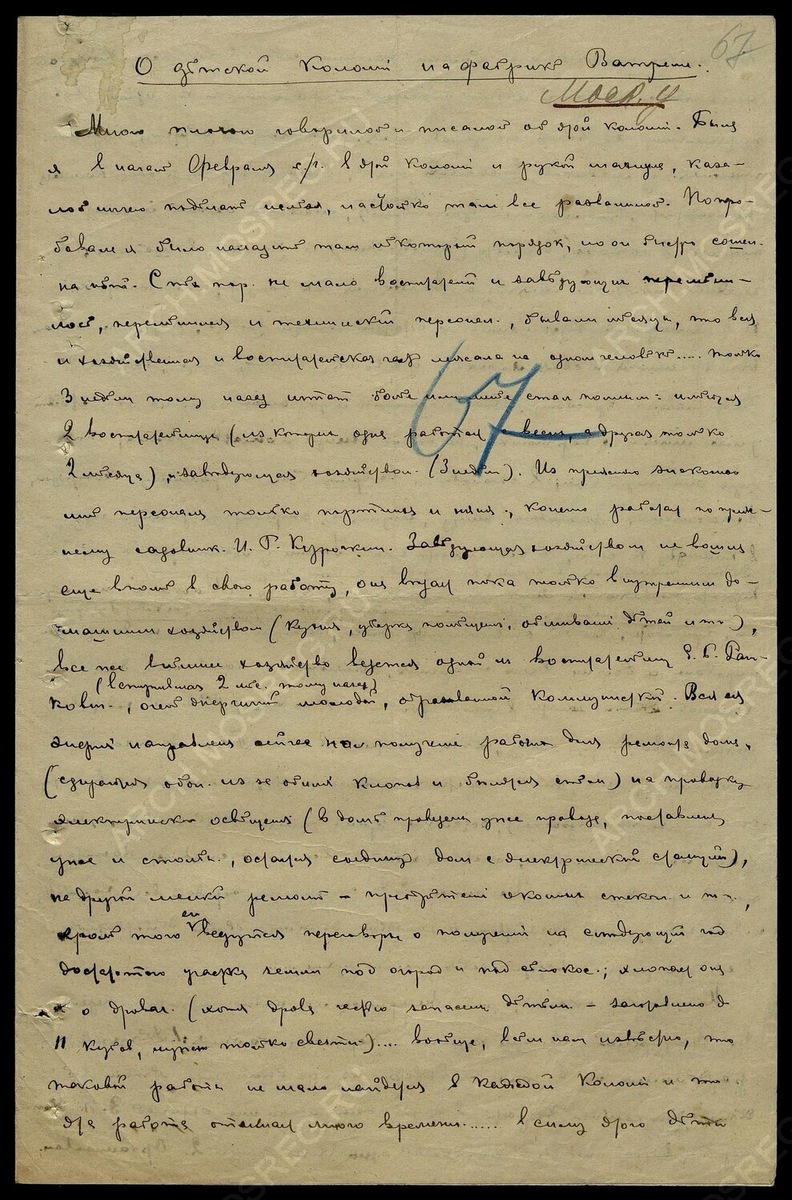 67
О дѣтской колоніи на фабрикѣ
Моск. у
Много плохого говорилось и писалось об этой колоніи. Была
я в началѣ Февраля с/г. в этой колоніи и рукой махнула, каза-
лось ничего подѣлать нельзя, настолько там все развалилось. Попро-
бовала я было наладить там нѣкоторый порядок, но он быстро сошел
на нѣт. С тѣх пор не мало воспитателей и завѣдующих перемѣни-
лось, перемѣнился и техническій персонал, бывали мѣсяцы, что вся
и хозяйственная и воспитательская часть лежала на одном человѣкѣ..... только
3 недѣли тому назад штат болѣе или менѣе стал полным: имѣются
67
2 воспитательницы (из которых одна работает с весны, а другая только
2 мѣсяца), и завѣдующая хозяйством (3 недѣли). Из прежняго знакомаго
мнѣ персонала только портниха и няня, конечно работает по преж-
нему садовник И. Г. Курочкин. Завѣдующая хозяйством не вошла
еще вполнѣ в свою работу, она вѣдает пока только внутренним до-
машним хозяйством (кухня, уборка помѣщенія, обшиваніе дѣтей и т.п.),
все же внѣшнее хозяйство ведется одной из воспитательниц Е. Б. Ран-
(вступившая 2 мѣс. тому назад)
кович, очень энергичной молодой, образованной коммунисткой. Вся ея
энергія направлена сейчас на полученіе рабочих для ремонта дома,
(сдираются обои из за обилія клопов и бѣлятся стѣны) на проводку
электрическаго освѣщенія (в домѣ проведены уже провода, поставлены
уже и столбы, остается соединить дом с электрической станціей),
на другой мелкій ремонт – пріобрѣтеніе оконных стекол и т.п.,
ею
кромѣ того ведутся переговоры о полученіи на слѣдующій год
добавочнаго участка земли под огород и под сѣнокос; хлопочет она
и о дровах (хотя дрова честно запасены дѣтьми – заготовлено
11 кубов, нужно только свезти).... вообще, всѣм нам извѣстно, что
таковой работы не мало найдется в каждой колоніи и что
эта работа отнимает много времени..... в силу этого дѣти